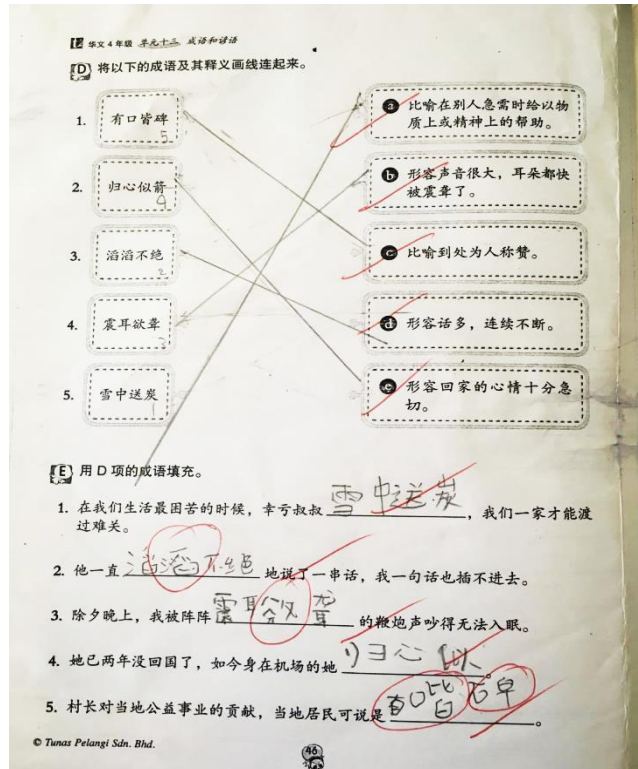 华文4年级 单元十三 成语和谚语
D 将以下的成语及其释义画线连起来。
1. 有口皆碑 5
a 比喻在别人急需时给以物
质上或精神上的帮助。
2. 归心似箭 4
b 形容声音很大，耳朵都快
被震聋了。
3. 滔滔不绝 2
c 比喻到处为人称赞。
4. 震耳欲聋 3
d 形容话多，连续不断。
5. 雪中送炭 1
e 形容回家的心情十分急
切。
E 用 D 项的成语填充。
1. 在我们生活最困苦的时候，幸亏叔叔雪中送炭，我们一家才能渡
过难关。
2. 他一直滔滔不绝地说了一串话，我一句话也插不进去。
3. 除夕晚上，我被阵阵震耳欲聋的鞭炮声吵得无法入眠。
4. 她已两年没回国了，如今身在机场的她归心似。
5. 村长对当地公益事业的贡献，当地居民可说是有口皆碑。
© Tunas Pelangi Sdn. Bhd.
46